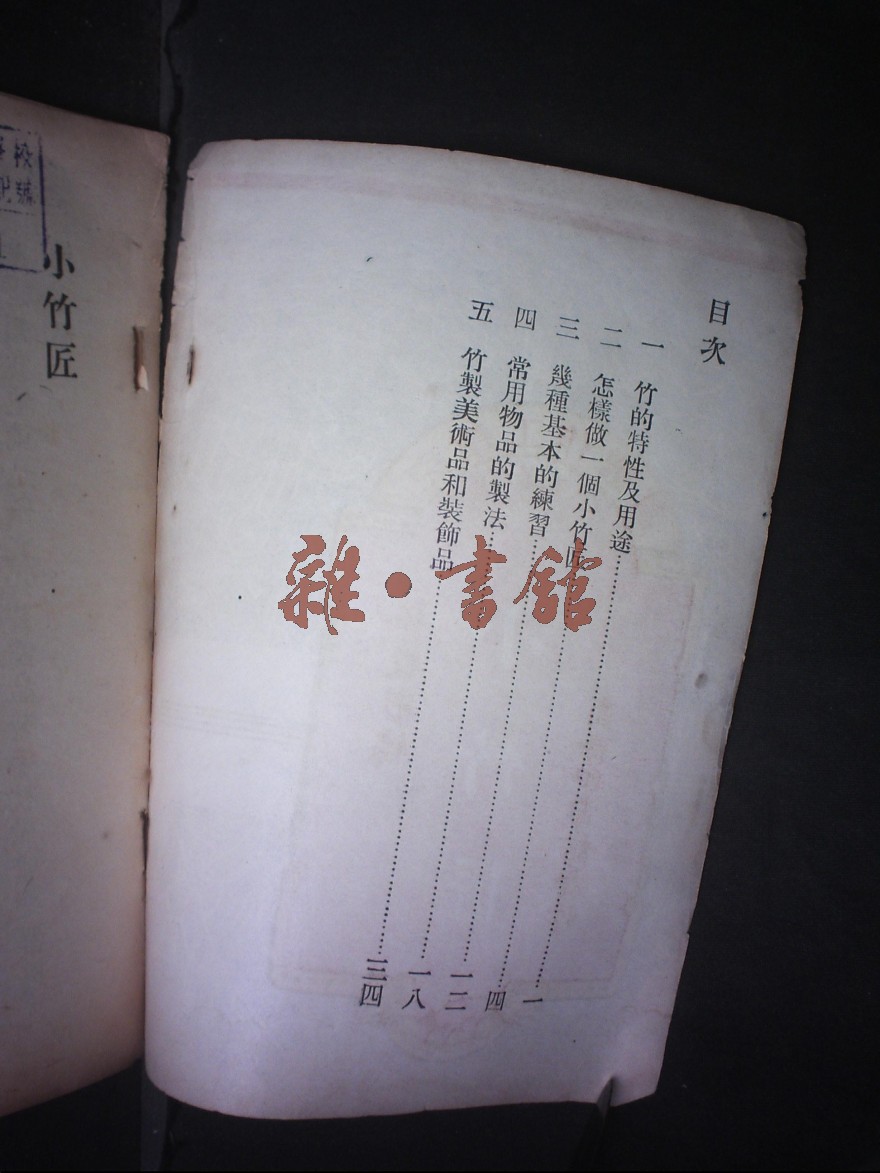 目次
一 竹的特性及用途……一
二 怎樣做一個小竹匠……四
三 幾種基本的練習……一二
四 常用物品的製法……一八
五 竹製美術品和裝飾品……三四
小竹匠
雜·書館